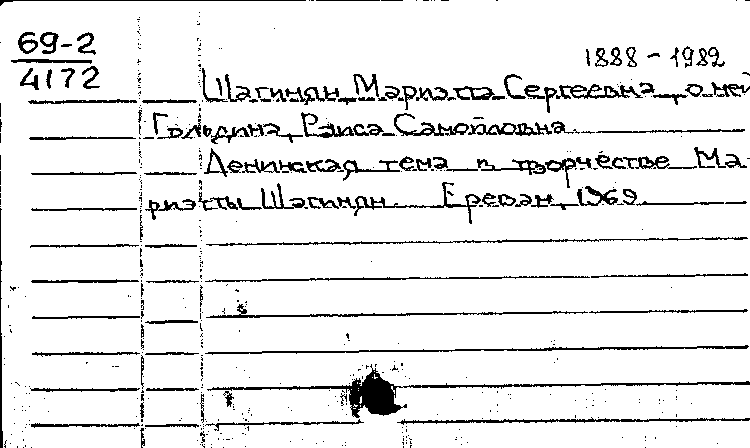 69-2
4172
1888 - 1982
Шагинян, Мариэтта Сергеевна, о ней
Гольдина, Раиса Самойловна.
Ленинская тема в творчестве Ма-
риэтты Шагинян. Ереван, 1969.